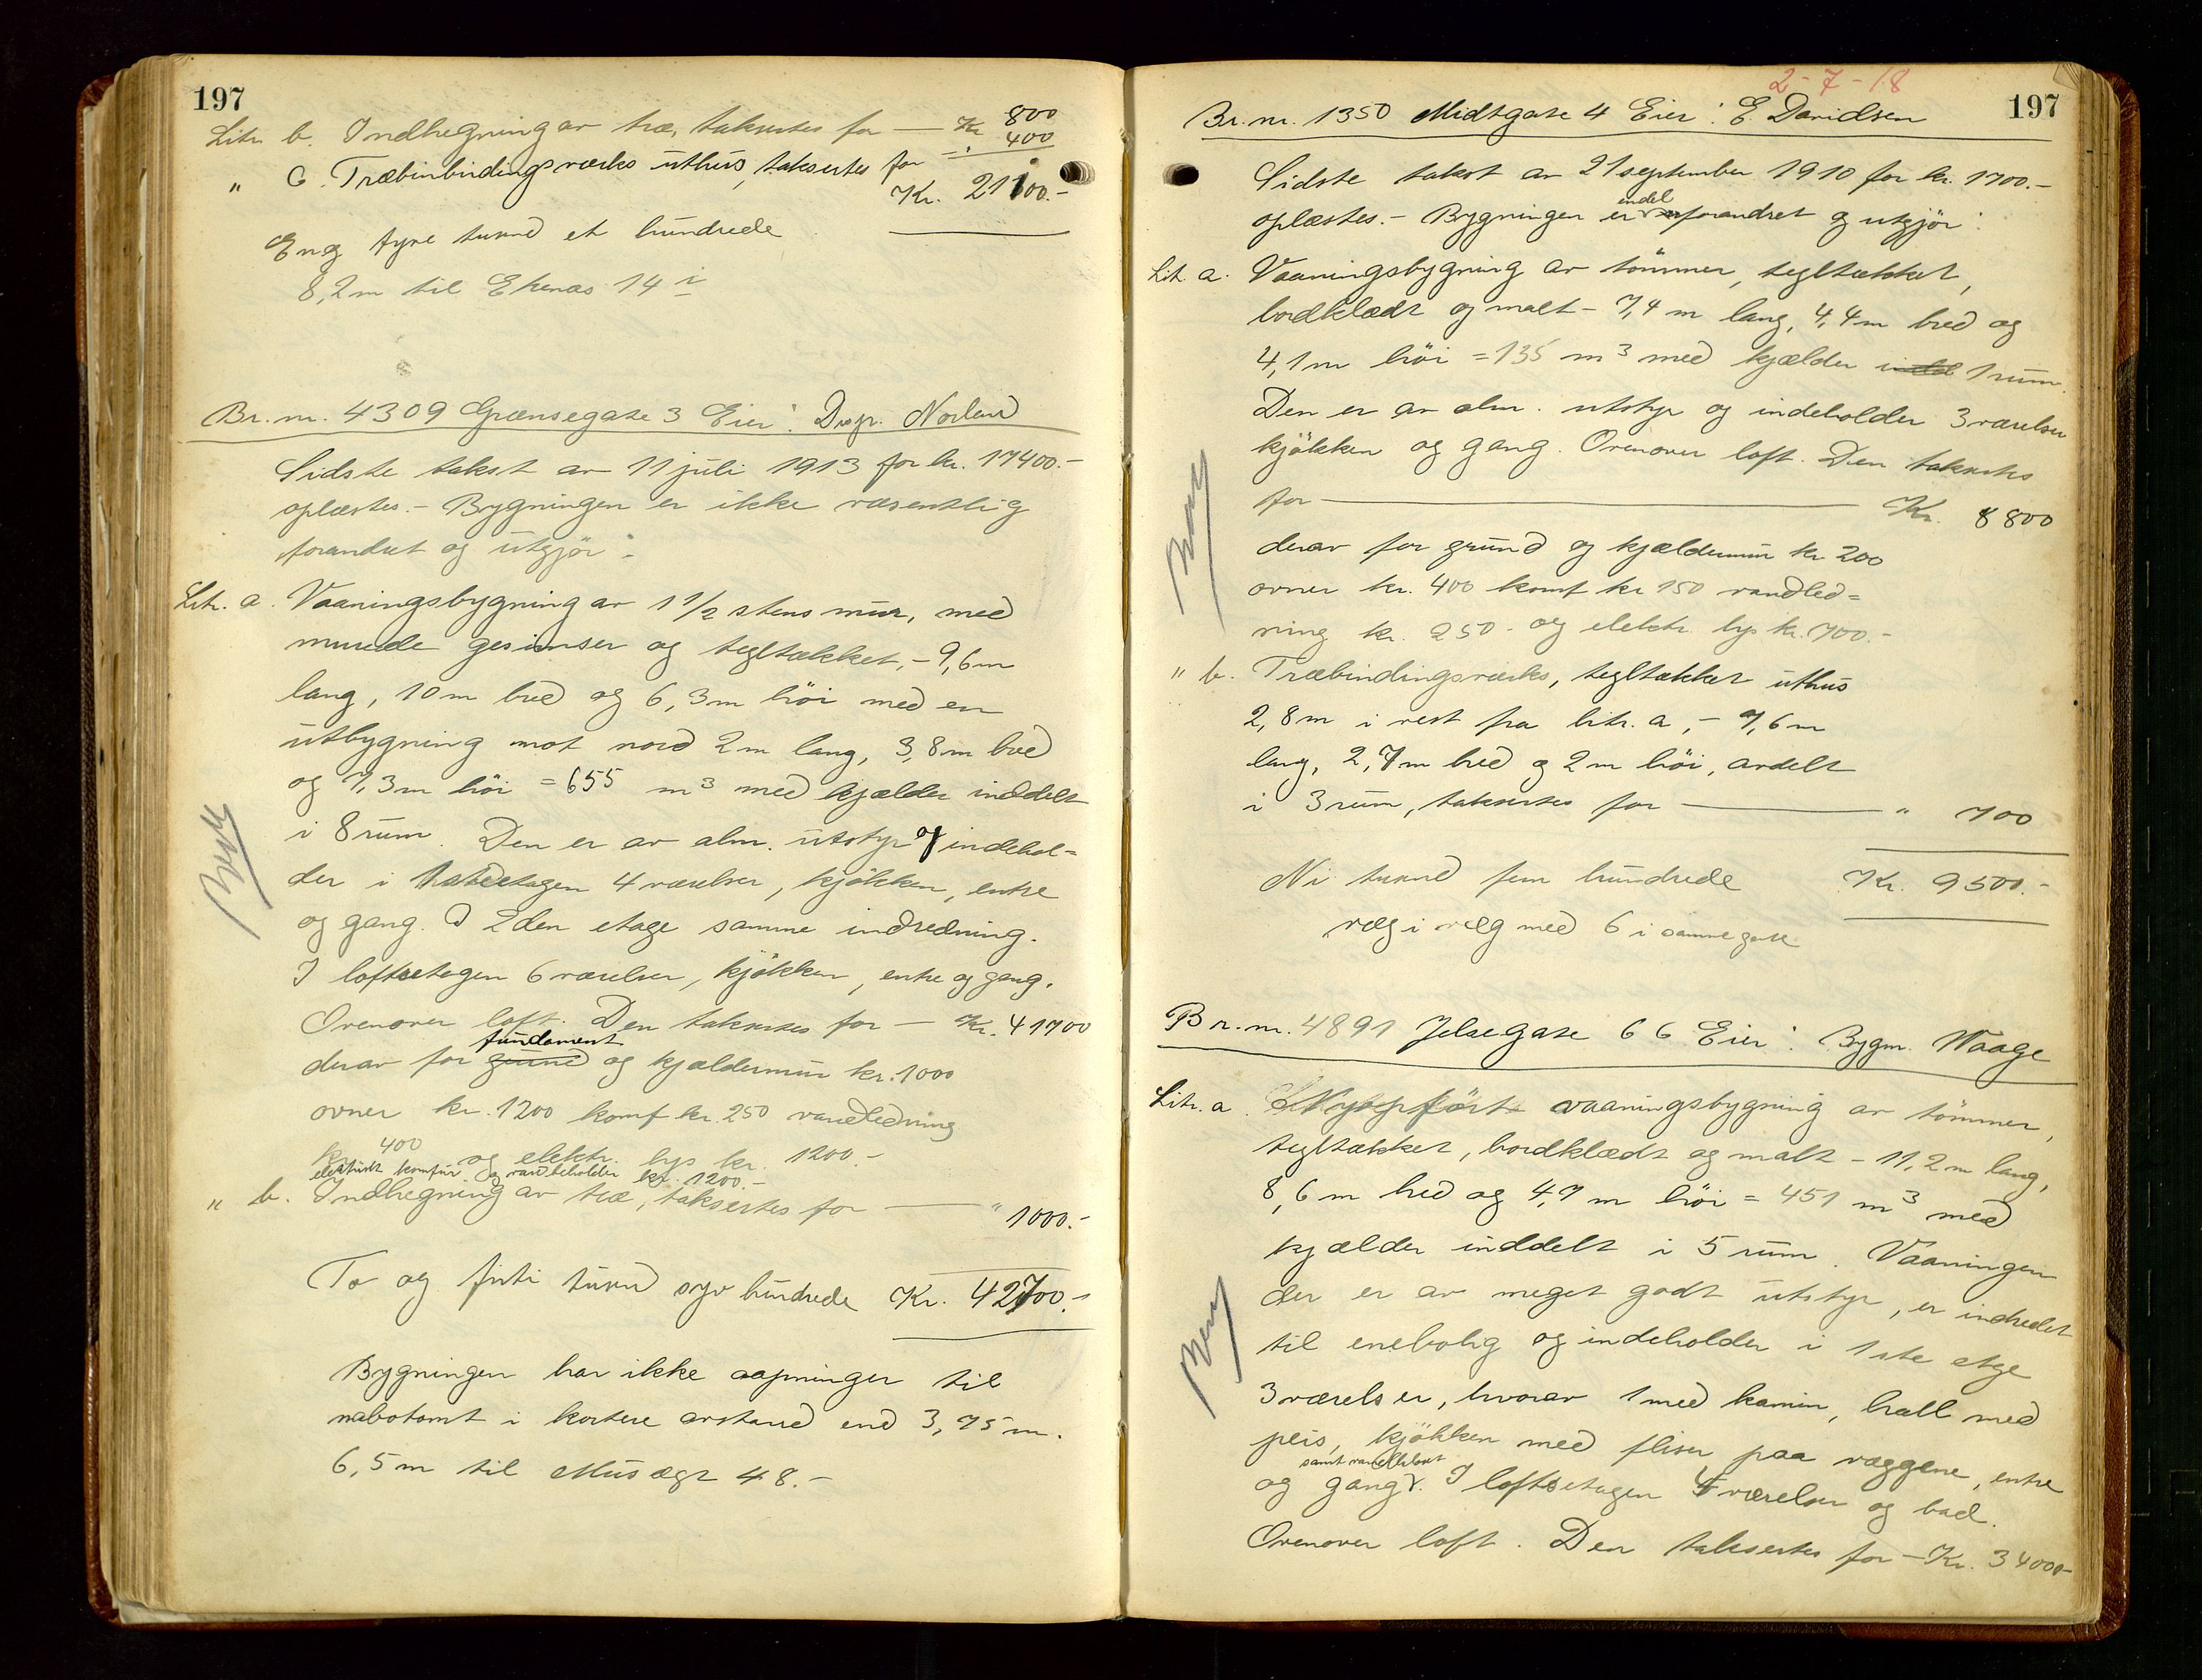 197
Litr. b. Indhegning av træ, taksertes for — Kr. 800
" C. Træbinbindingsværks uthus, taksertes for — " 400
Kr. 21100.-
En og tyve tusind et hundrede
8,2m til Ekenæs 14 i
Br. nr. 4309 Grænsegate 3 Eier: Disp. Norland
Sidste takst av 11 juli 1913 for kr. 17400.-
oplæstes.- Bygningen er ikke væsentlig
forandret og utgjør:
Litr. a. Vaaningsbygning av 1 1/2 stens mur, med
murede gesimser og tegltækket,- 9,6m
lang, 10m bred og 6,3m höi med en
utbygning mot nord 2m lang, 3,8m bred
og 7,3m höi = 655 m3 med kjælder inddelt
i 8 rum. Den er av alm. utstyr og indehol=
der i 1ste etagen 4 værelser, kjøkken, entre
og gang. I 2den etage samme indredning.
I loftsetagen 6 værelser, kjøkken, entre og gang.
Ovenover loft. Den taksertes for — Kr. 41700
fundament
derav for grund og kjældermur kr. 1000
ovner kr. 1200 komf kr. 250 vandledning
kr. 400 og elektr. lys kr. 1200.-
elektrisk komfur og vandbeholder kr. 1200.-
" b. Indhegning av træ, taksertes for — " 1000.-
To og firti tusind syv hundrede Kr. 42700.-
Bygningen har ikke aapninger til
nabotomt i kortere avstand end 3,75m.
6,5m til Musægt 48.-
2-7-18
197
Br. nr. 1350 Midtgate 4 Eier: E. Davidsen
Sidste takst av 21 september 1910 for kr. 1700.-
endel
oplæstes.- Bygningen er forandret og utgjør:
Lit. a. Vaaningsbygning av tömmer, tegltækket,
bordklædt og malt - 7,4 m lang, 4,4m bred og
4,1m höi = 135 m3 med kjælder indd 1 rum.
Den er av alm. utstyr og indeholder 3 værelser
kjøkken og gang. Ovenover loft. Den taksertes
for — Kr. 8800
derav for grund og kjældermur kr 200
ovner kr. 400 komf kr 150 vandled=
ning kr. 250.- og elektr. lys kr. 700.-
" b. Træbindingsværks, tegltækket uthus
2,8m i vest fra litr. a, - 7,6m
lang, 2,7m bred og 2m höi, avdelt
i 3 rum, taksertes for — " 700
Ni tusind fem hundrede Kr. 9500.-
væg i væg med 6 i samme gate
Br. nr. 4891 Jelsegate 66 Eier: Bygm. Waage
Litr. a. Nyopført vaaningsbygning av tömmer,
tegltækket, bordklædt og malt - 11,2m lang,
8,6m bred og 4,7m höi = 451 m3 med
kjælder inddelt i 5 rum. Vaaningen
der er av meget godt utstyr, er indredet
til enebolig og indeholder i 1ste etge
3 værelser, hvorav 1 med kamin, hall med
peis, kjøkken med fliser paa væggene, entre
samt vandklosit
og gang. I loftsetagen 4 værelser og bad.
Ovenover loft. Den taksertes for — Kr. 34000-